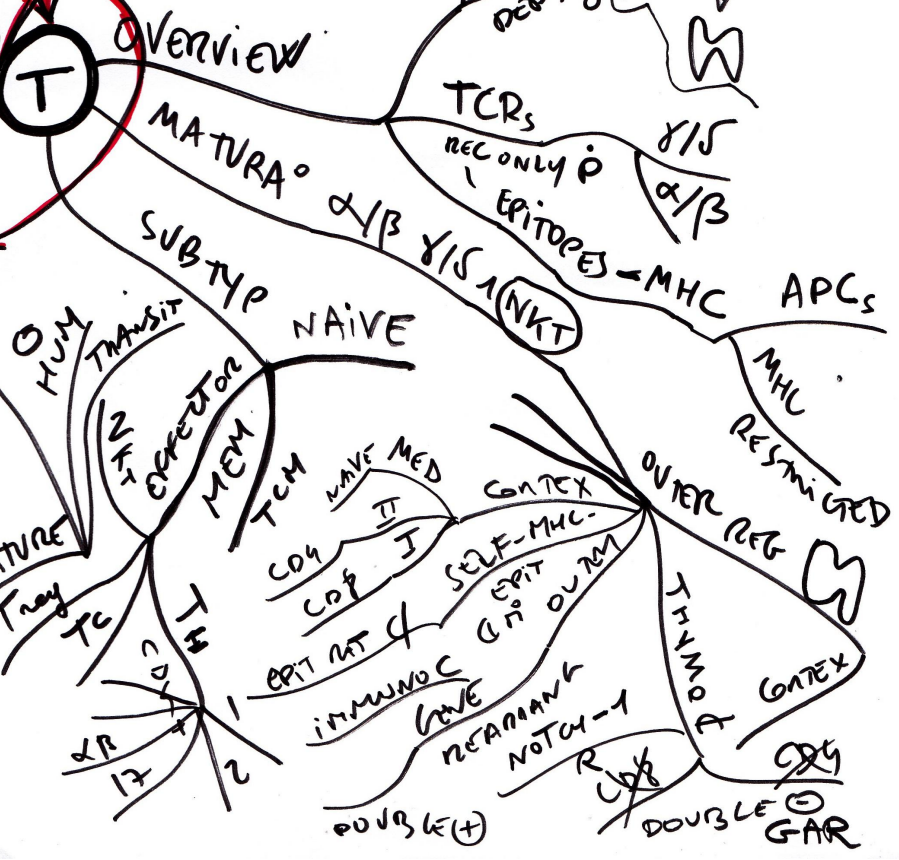 T
OVERVIEW
TCRs
γ/δ
α/β
REC ONLY
EPITOPES - MHC
APCs
MHC
RESTRICTED
MATURA°
α/β γ/δ
NKT
OUTER REG
CORTEX
THYMO
CD4
CD8
DOUBLE ⊖
GAR
NOTCH-1
R
GENE
REARRANG
DOUBLE ⊕
CORTEX
MED
NAIVE
II
CD4
I
CD8
SELF-MHC-
EPIT
EPIT
IMMUNOC
SUBTYP
NAIVE
MEM
TCM
EFFECTOR
NKT
TRANSIT
HUM
TURE
Treg
TC
TH
CD4+
1
2
17
αβ